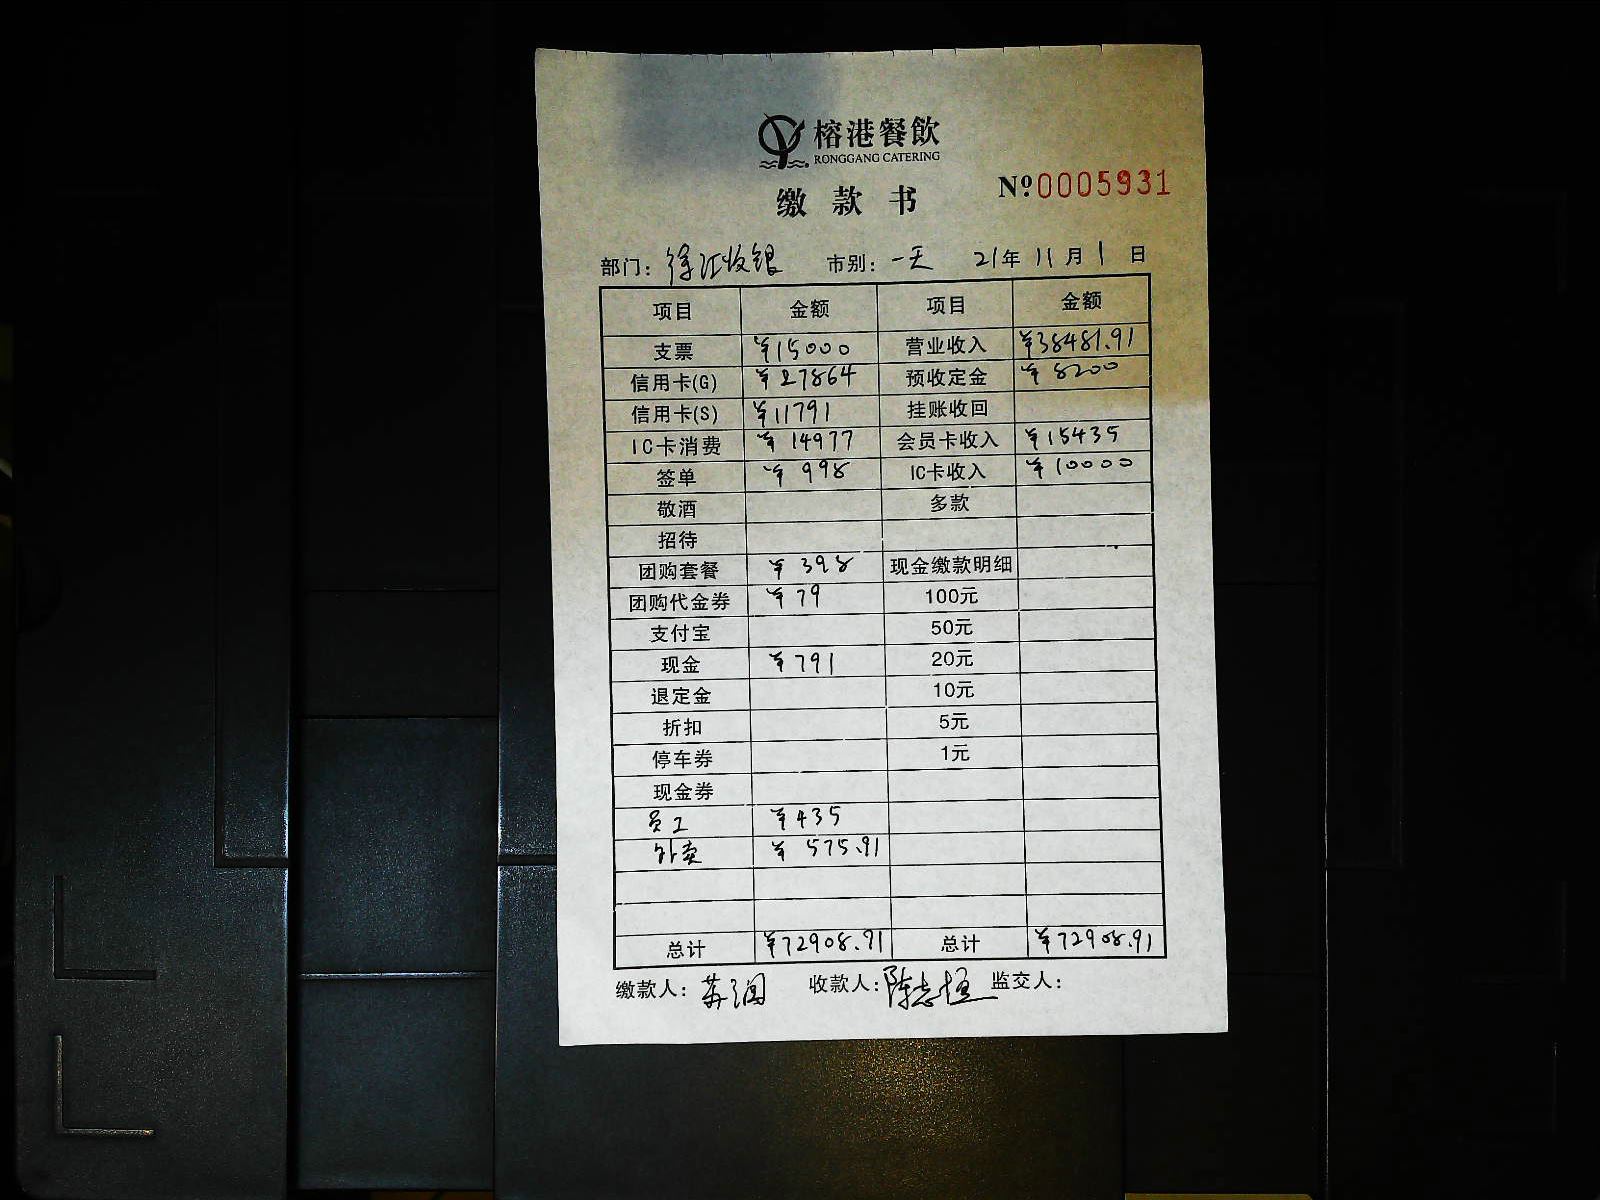 榕港餐飲
RONGGANG CATERING
缴款书 Nº.0005931
部门: 徐汇收银 市别: 一天 21年 11月 1日
项目 金额 项目 金额
支票 ¥15000 营业收入 ¥38481.91
信用卡(G) ¥27864 预收定金 ¥8200
信用卡(S) ¥11791 挂账收回
IC卡消费 ¥14977 会员卡收入 ¥15435
签单 ¥998 IC卡收入 ¥10000
敬酒 多款
招待
团购套餐 ¥398 现金缴款明细
团购代金券 ¥79 100元
支付宝 50元
现金 ¥791 20元
退定金 10元
折扣 5元
停车券 1元
现金券
员工 ¥435
外卖 ¥575.91
总计 ¥72908.91 总计 ¥72908.91
缴款人: 收款人: 陈志 监交人: